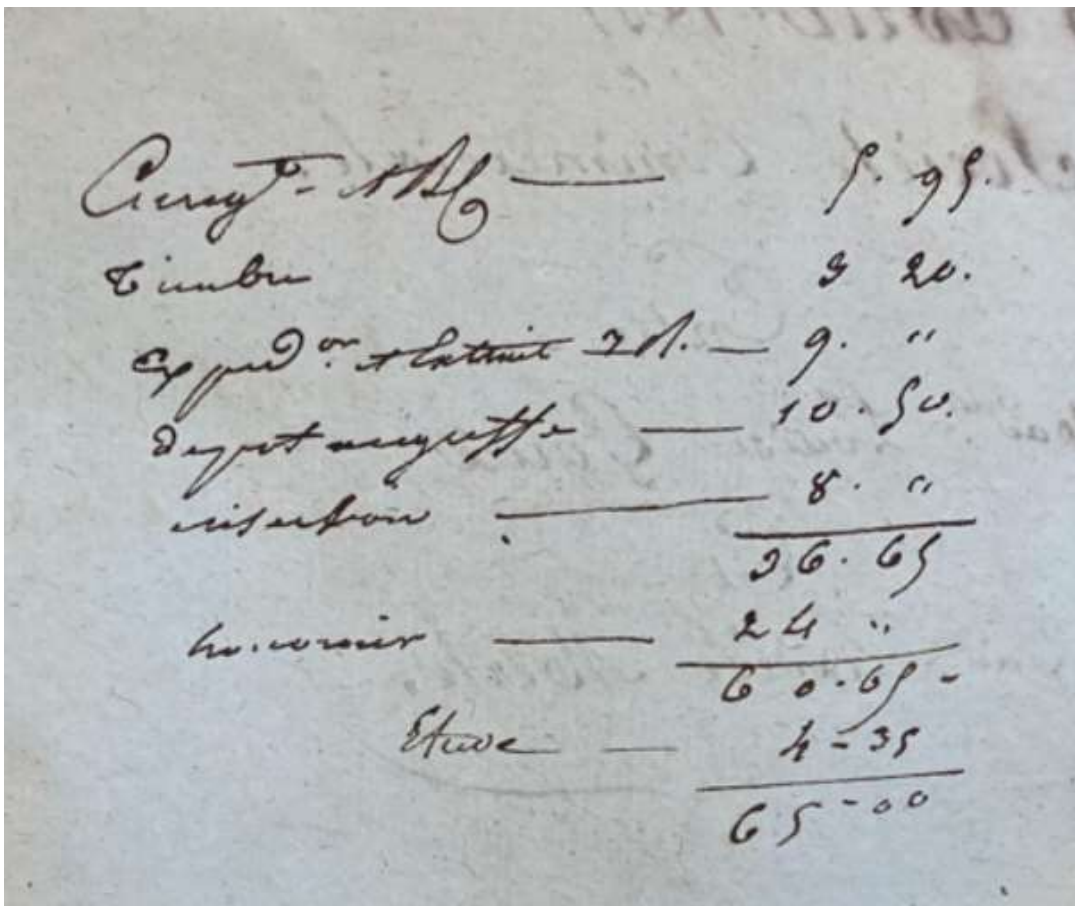 Enregt. ABC — 5. 95.
Timbre 3 20.
Expedon. et Extrait 2 R. — 9. "
depot au greffe — 10. 50.
insertion — 8. "
36. 65
honoraires — 24 "
60. 65 -
Etude — 4 - 35
65 - 00